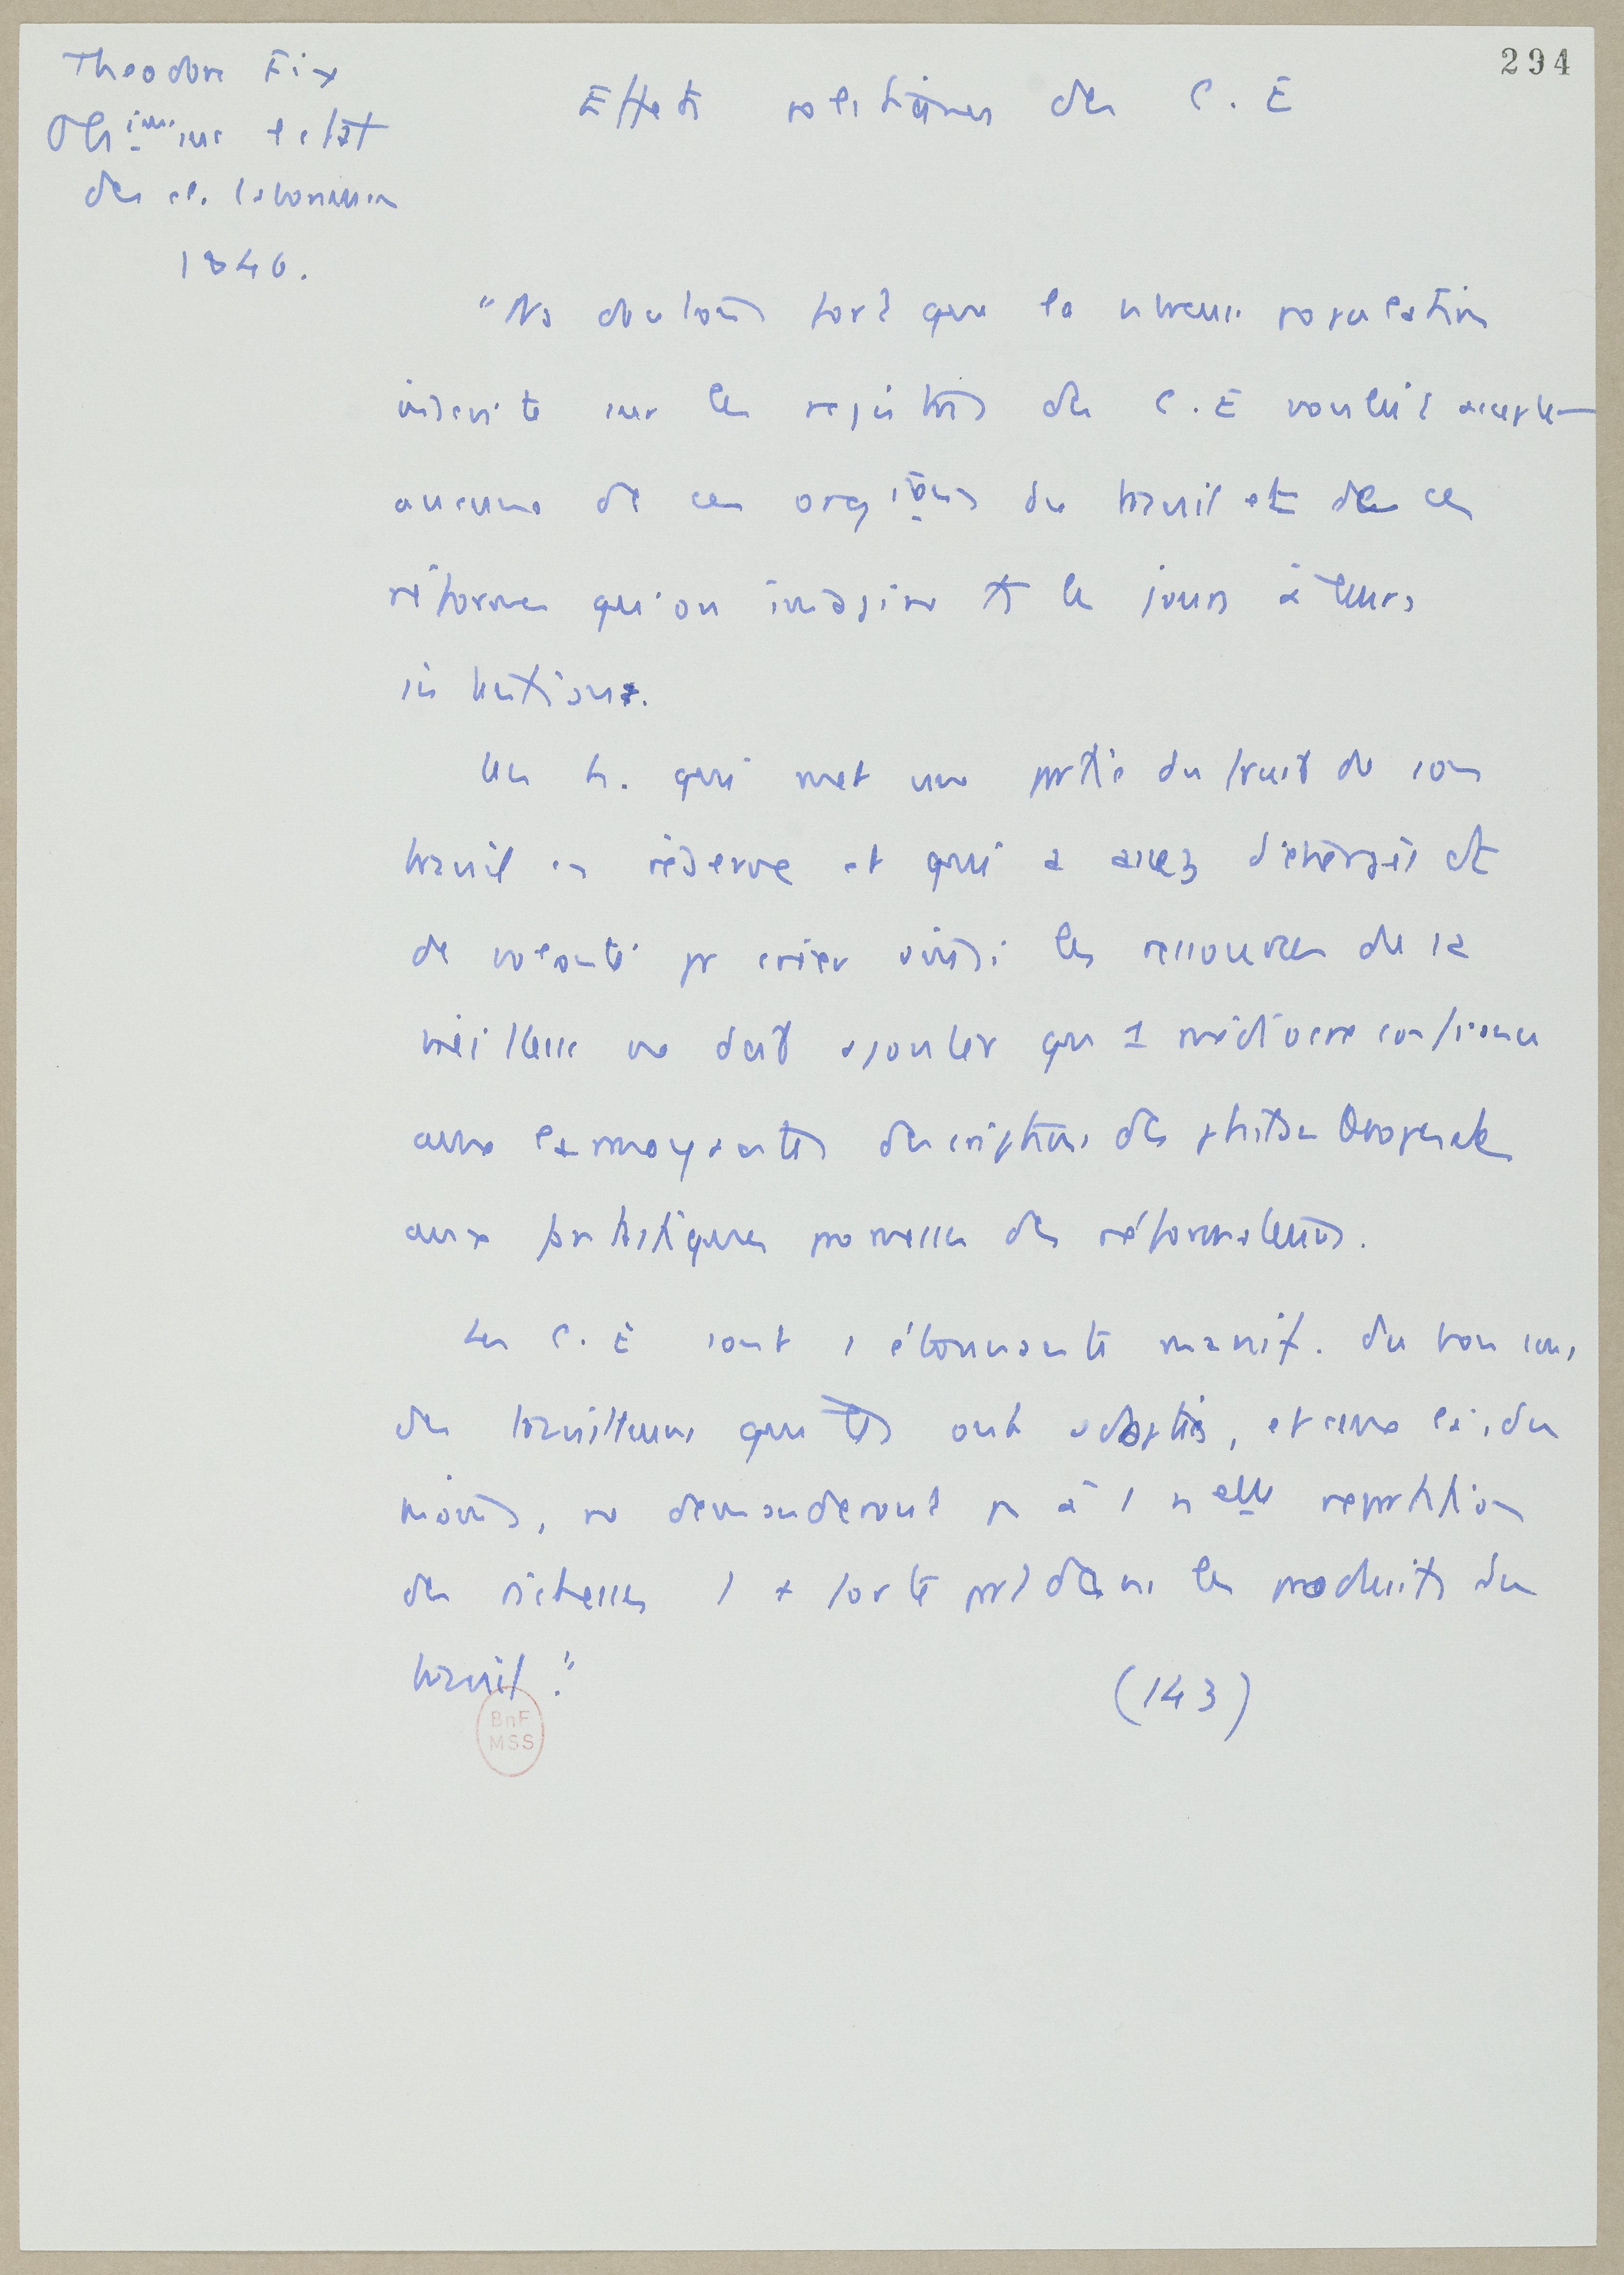 294
Theodore Fix
Obs ions sur l'état
des cl. laborieuses
1846.
Effets politiques des C. E
"Ns doutons fort que la nbreuse population
inscrite sur les registres des C. E voulût accepter
aucune de ces orgions du travail et de ces
réformes qu'on imagine ts les jours à leurs
intentions.
Un h. qui met une prtie du fruit de son
travail en réserve et qui a assez d'énergie et
de volonté pr créer ainsi les ressources de sa
vieillesse ne doit ajouter qu'1 médiocre confiance
aux larmoyantes descriptions des philanthropes et
aux fantastiques promesses des réformateurs.
Les C. E sont 1 étonnante manif. du bon sens
des travailleurs qui les ont adoptées, et ceux là, du
moins, ne demanderont p à 1 nelle reprtition
des richesses 1 + forte prt dans les produits du
travail."
(143)
BnF
MSS